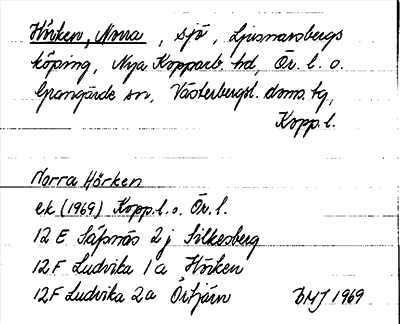 Hörken, Norra, sjö, Ljusnarsbergs
köping, Nya Kopparb. hd, Ör. l. o.
Grangärde sn, Västerbergsl. doms. tg,
Kopp. l.
Norra Hörken
ek (1969) Kopp. l. o. Ör. l.
12 E Säfsnäs 2 j Silkesberg
12 F Ludvika 1 a Hörken
12 F Ludvika 2 a Örtjärn BMJ 1969